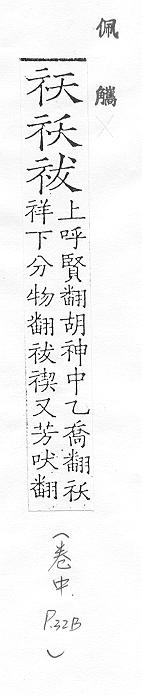 佩觿
祆祅祓
上呼賢翻胡神中乙喬翻祅
祥下分物翻祓禊又芳吠翻
（卷中. P.32B）